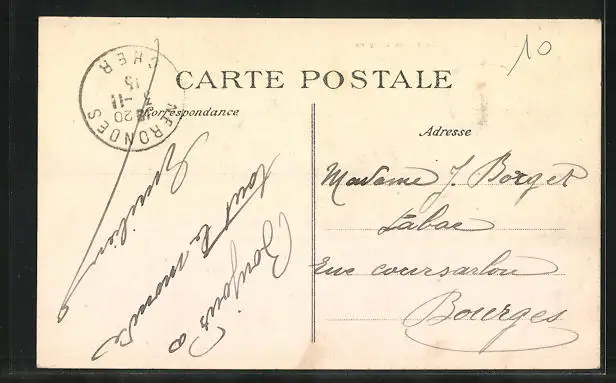 CARTE POSTALE
Correspondance
Adresse
NERONDES
CHER
20
15 -11
10
Bonjour a
tout le monde
Emilien
Madame J. Borget
Tabac
Rue coursarlon
Bourges